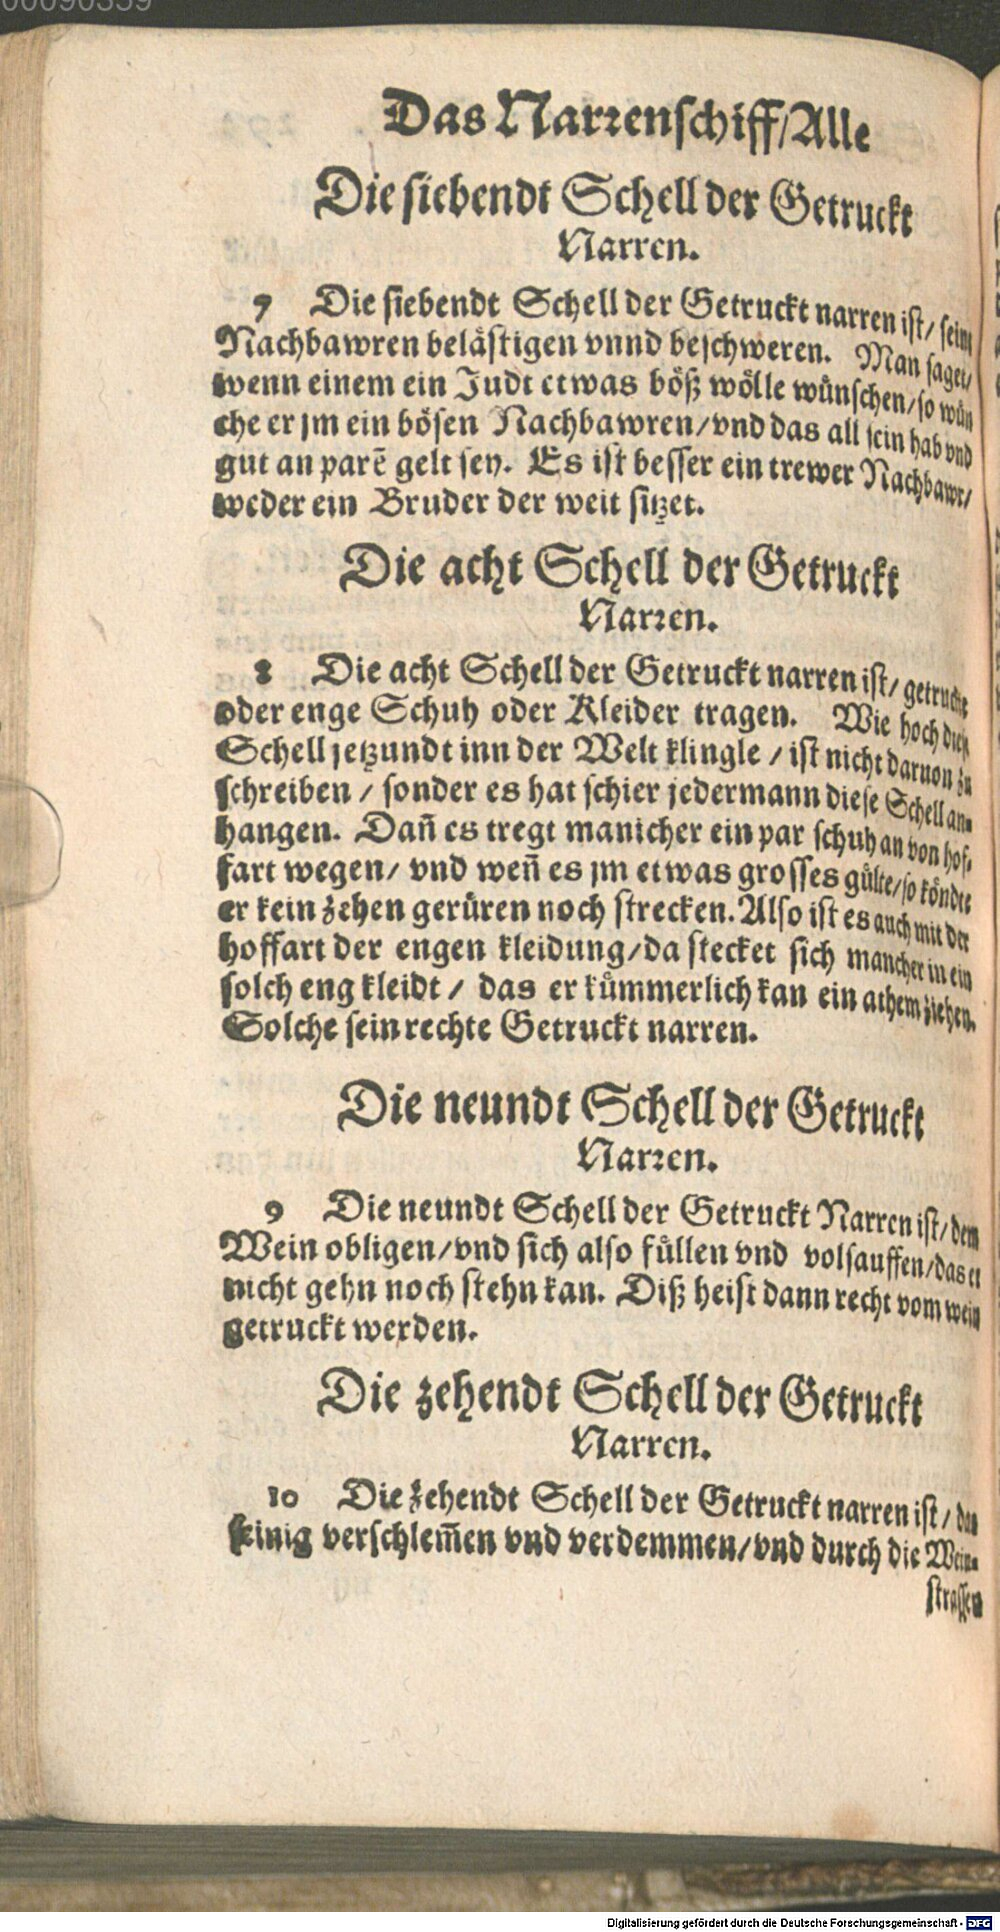 00090359
Das Narrenschiff/Alle
Die siebendt Schell der Getruckt
Narren.
7 Die siebendt Schell der Getruckt narren ist/ seine
Nachbawren belästigen vnnd beschweren. Man saget/
wenn einem ein Judt etwas böß wölle wünschen/so wün
che er jm ein bösen Nachbawren/vnd das all sein hab vnd
gut an parē gelt sey. Es ist besser ein trewer Nachbawr/
weder ein Bruder der weit sitzet.
Die acht Schell der Getruckt
Narren.
8 Die acht Schell der Getruckt narren ist/ getruckte
oder enge Schuh oder Kleider tragen. Wie hoch diese
Schell jetzundt inn der Welt klingle / ist nicht daruon zu
schreiben / sonder es hat schier jedermann diese Schell an-
hangen. Dañ es tregt manicher ein par schuh an von hof-
fart wegen/ vnd weñ es jm etwas grosses gülte/so köndte
er kein zehen gerüren noch strecken. Also ist es auch mit der
hoffart der engen kleidung/da stecket sich mancher in ein
solch eng kleidt / das er kümmerlich kan ein athem ziehen.
Solche sein rechte Getruckt narren.
Die neundt Schell der Getruckt
Narren.
9 Die neundt Schell der Getruckt Narren ist/ dem
Wein obligen/vnd sich also füllen vnd volsauffen/das er
nicht gehn noch stehn kan. Diß heist dann recht vom wein
getruckt werden.
Die zehendt Schell der Getruckt
Narren.
10 Die zehendt Schell der Getruckt narren ist / das
seinig verschlem̄en vnd verdemmen/vnd durch die Wein-
strassen
Digitalisierung gefördert durch die Deutsche Forschungsgemeinschaft - DFG